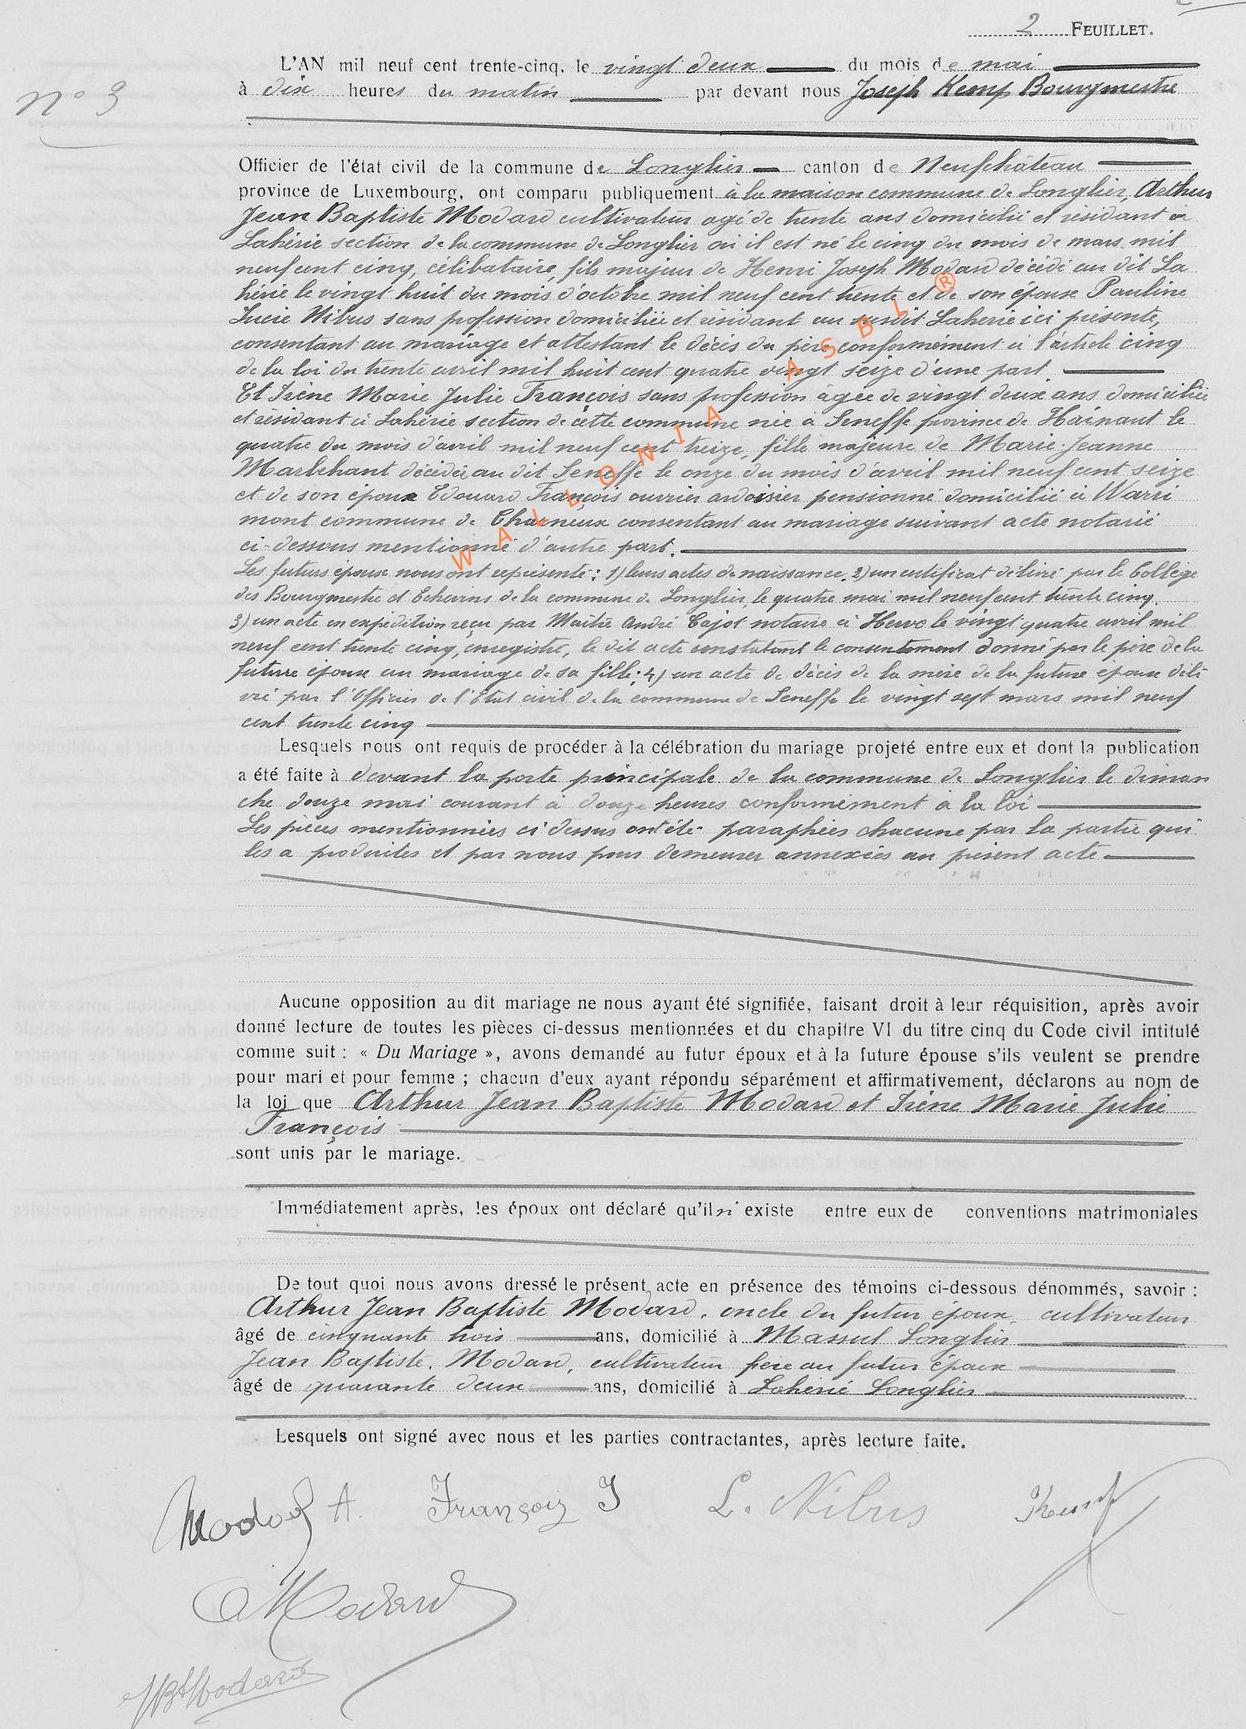 2 FEUILLET.
L'AN mil neuf cent trente-cinq, le vingt deux du mois de mai
N° 3
à dix heures du matin par devant nous Joseph Kemp Bourgmestre
Officier de l'état civil de la commune de Longlier canton de Neufchâteau
province de Luxembourg, ont comparu publiquement à la maison commune de Longlier, Arthur
Jean Baptiste Modard cultivateur agé de trente ans domicilié et résidant à
Lahérie section de la commune de Longlier où il est né le cinq du mois de mars mil
neuf cent cinq, célibataire, fils majeur de Henri Joseph Modard décédé au dit La
hérie le vingt huit du mois d'octobre mil neuf cent trente et de son épouse Pauline
Lucie Nibus sans profession domiciliée et résidant au susdit Laherie ici présente,
consentant au mariage et attestant le décès du père conformément à l'article cinq
de la loi du trente avril mil huit cent quatre vingt seize d'une part
Et Irène Marie Julie François sans profession âgée de vingt deux ans domiciliée
et résidant à Lahérie section de cette commune née à Seneffe province de Hainaut le
quatre du mois d'avril mil neuf cent treize, fille majeure de Marie-Jeanne
Marlehant décédée au dit Seneffe le onze du mois d'avril mil neuf cent seize
et de son époux Edouard François ouvrier ardoisier pensionné domicilié à Warri
mont commune de Charneux consentant au mariage suivant acte notarié
ci-dessous mentionné d'autre part.
Les futurs époux nous ont représenté : 1) leurs actes de naissance. 2) un certificat délivré par le Collège
des Bourgmestre et Echevins de la commune de Longlier, le quatre mai mil neuf cent trente cinq.
3) un acte en expédition reçu par Maître André Cajot notaire à Herve le vingt quatre avril mil
neuf cent trente cinq, enregistré, le dit acte constatant le consentement donné par le père de la
future épouse au mariage de sa fille ; 4) un acte de décès de la mère de la future épouse déli
vré par l'Officier de l'Etat civil de la commune de Seneffe le vingt sept mars mil neuf
cent trente cinq
Lesquels nous ont requis de procéder à la célébration du mariage projeté entre eux et dont la publication
a été faite à devant la porte principale de la commune de Longlier le diman
che douze mai courant à douze heures conformément à la loi
Les pièces mentionnées ci dessus ont été paraphées chacune par la partie qui
les a produites et par nous pour demeurer annexées au présent acte
Aucune opposition au dit mariage ne nous ayant été signifiée, faisant droit à leur réquisition, après avoir
donné lecture de toutes les pièces ci-dessus mentionnées et du chapitre VI du titre cinq du Code civil intitulé
comme suit : « Du Mariage », avons demandé au futur époux et à la future épouse s'ils veulent se prendre
pour mari et pour femme ; chacun d'eux ayant répondu séparément et affirmativement, déclarons au nom de
la loi que Arthur Jean Baptiste Modard et Irène Marie Julie
François
sont unis par le mariage.
Immédiatement après, les époux ont déclaré qu'il n'existe entre eux de conventions matrimoniales
De tout quoi nous avons dressé le présent acte en présence des témoins ci-dessous dénommés, savoir :
Arthur Jean Baptiste Modard, oncle du futur époux, cultivateur
âgé de cinquante trois ans, domicilié à Massul Longlier
Jean Baptiste Modard, cultivateur frère au futur époux
âgé de quarante deux ans, domicilié à Lahérie Longlier
Lesquels ont signé avec nous et les parties contractantes, après lecture faite.
Modard A. François I L. Nibus Kemp
A Modard
JBtModard
WALLONIA ASBL ®